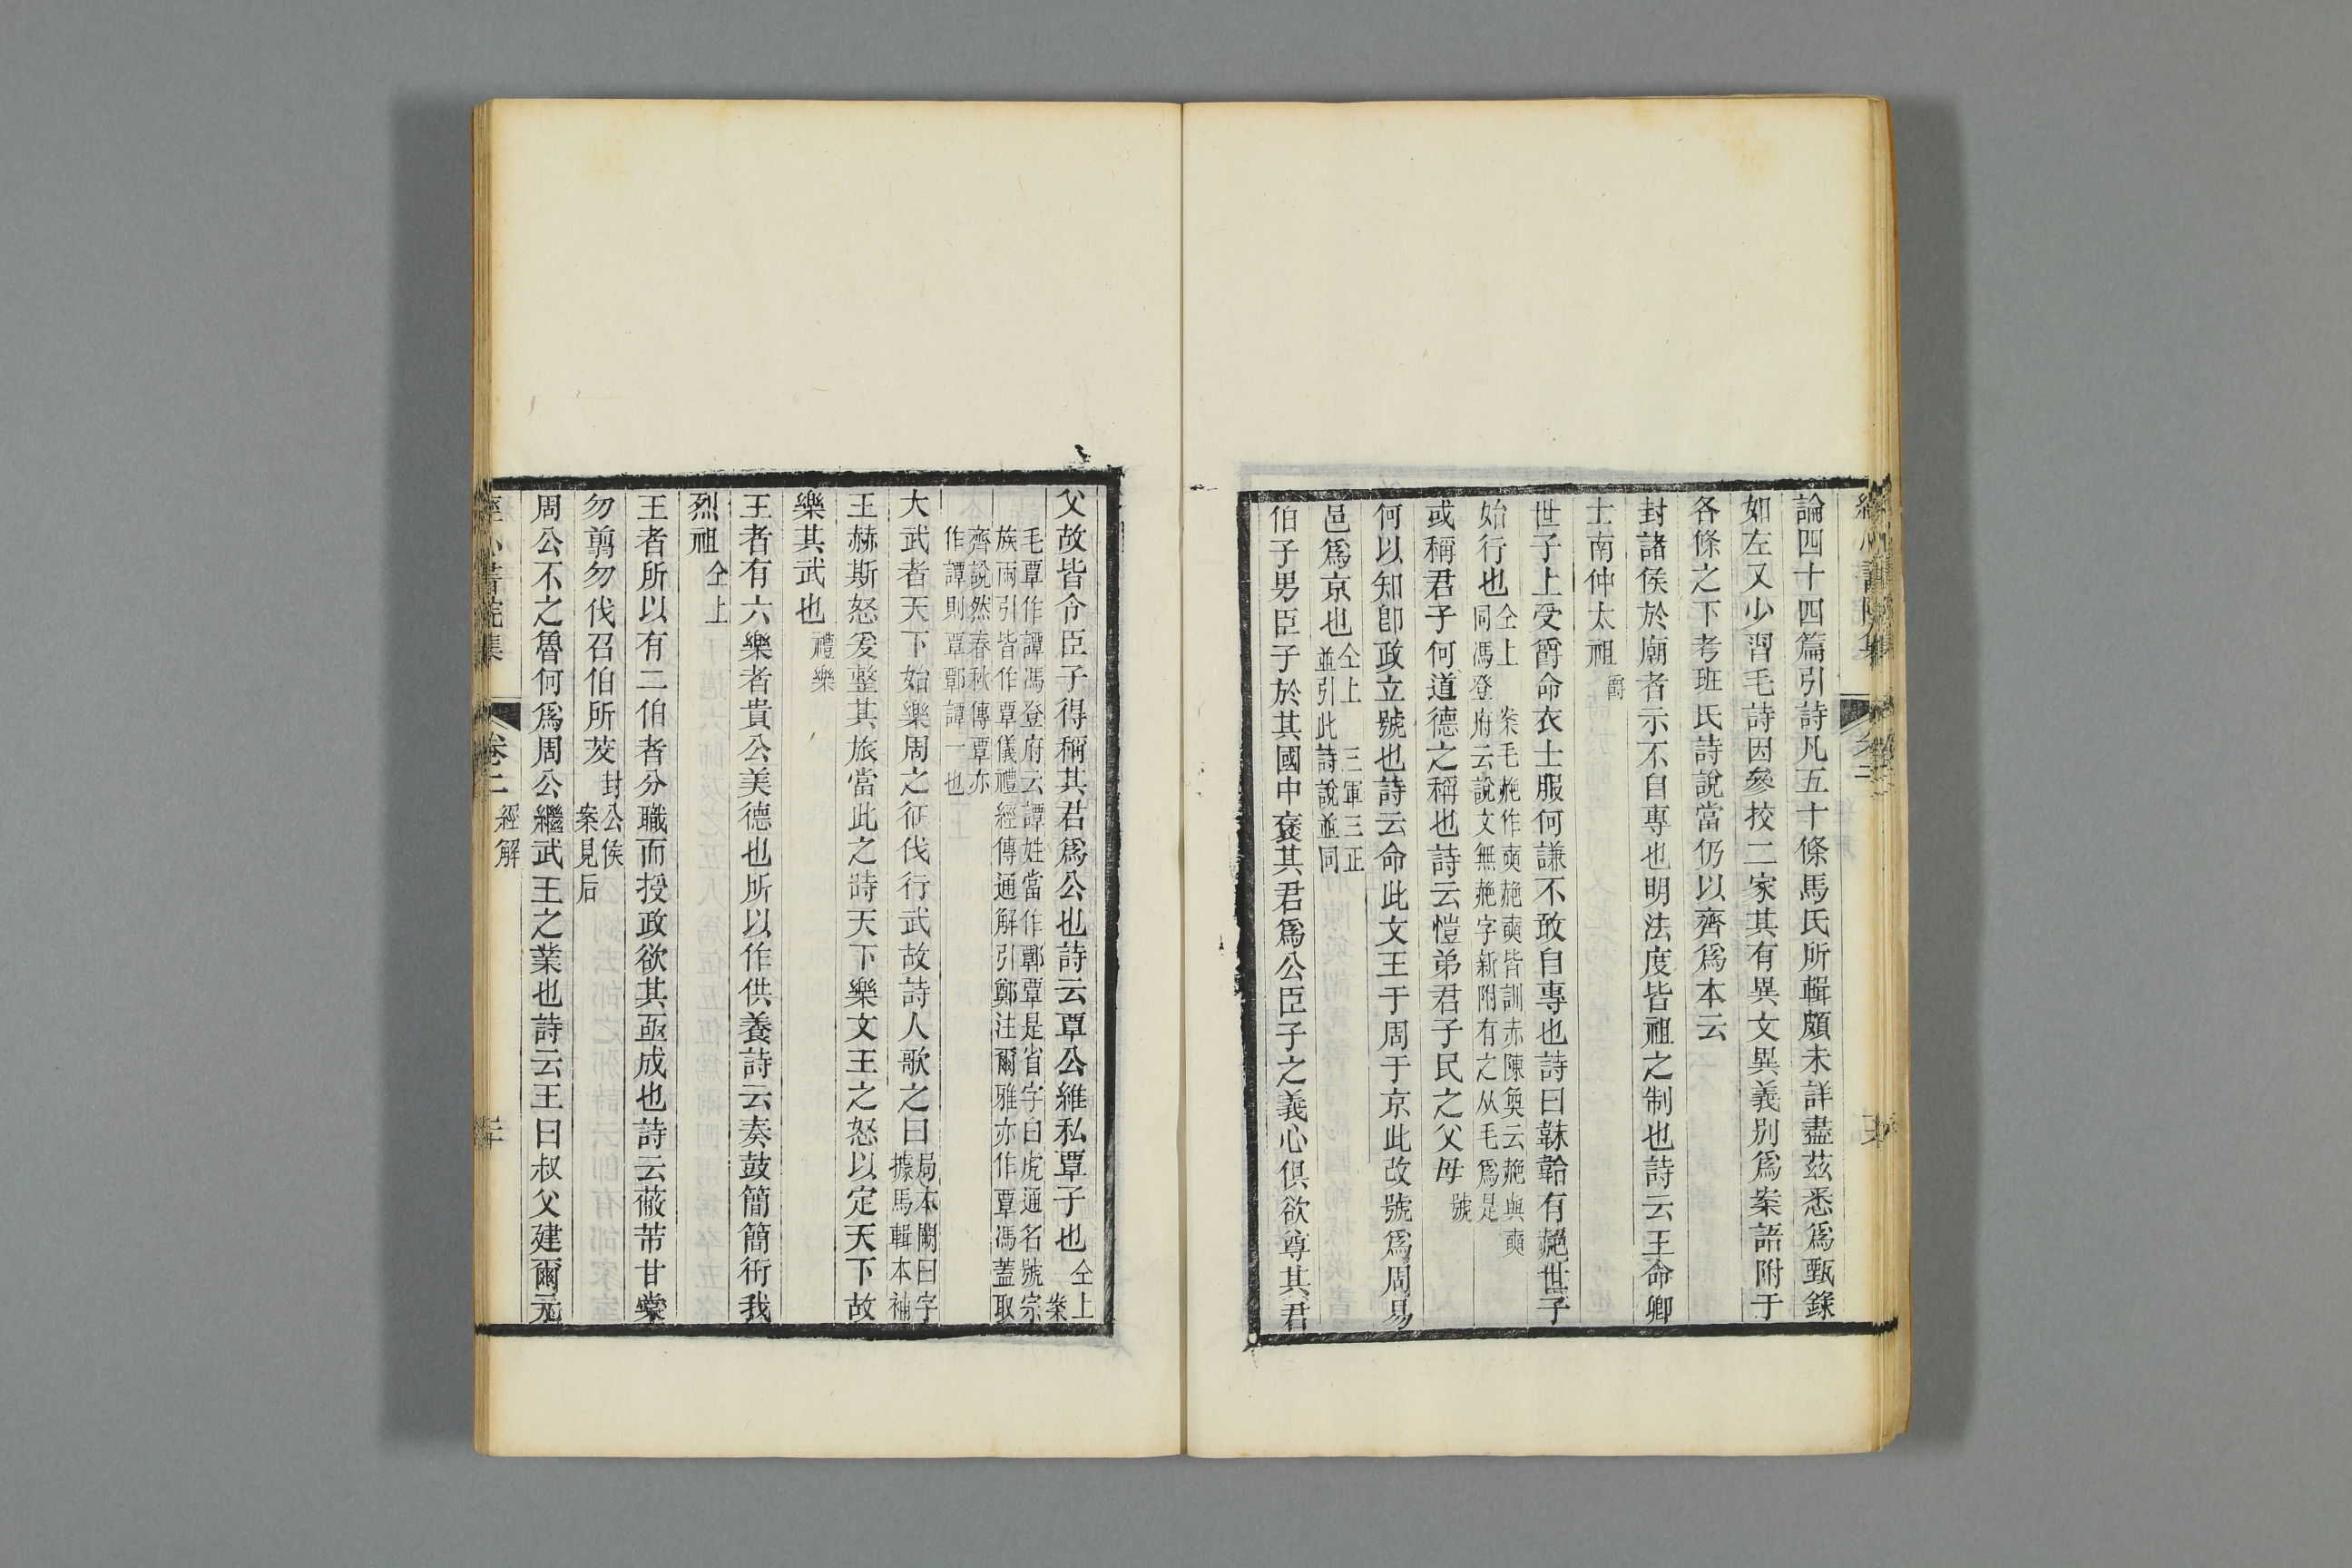 論四十四篇引詩凡五十條馬氏所輯頗未詳盡茲悉爲甄錄
如左又少習毛詩因參挍二家其有異文異義別爲案語附于
各條之下考班氏詩說當仍以齊爲本云
封諸侯於廟者示不自專也明法度皆祖之制也詩云王命卿
士南仲太祖爵
世子上受爵命衣士服何謙不敢自專也詩曰韎韐有赩世子
始行也仝上 案毛赩作奭赩奭皆訓赤陳奐云赩與奭
同馮登府云說文無赩字新附有之从毛爲是
或稱君子何道德之稱也詩云愷弟君子民之父母號
何以知卽政立號也詩云命此文王于周于京此改號爲周易
邑爲京也仝上 三軍三正
並引此詩說並同
伯子男臣子於其國中襃其君爲公臣子之義心俱欲尊其君
父故皆令臣子得稱其君爲公也詩云覃公維私覃子也仝上
案
毛覃作譚馮登府云譚姓當作鄲覃是省字白虎通名號宗
族兩引皆作覃儀禮經傳通解引鄭注爾雅亦作覃馮蓋取
齊說然春秋傳覃亦
作譚則覃鄲譚一也
大武者天下始樂周之征伐行武故詩人歌之曰局本闕曰字
據馬輯本補
王赫斯怒爰整其旅當此之時天下樂文王之怒以定天下故
樂其武也禮樂
王者有六樂者貴公美德也所以作供養詩云奏鼓簡簡衎我
烈祖仝上
王者所以有二伯者分職而授政欲其亟成也詩云蔽芾甘棠
勿翦勿伐召伯所茇封公侯
案見后
周公不之魯何爲周公繼武王之業也詩云王曰叔父建爾元
經心書院集 卷二 經解